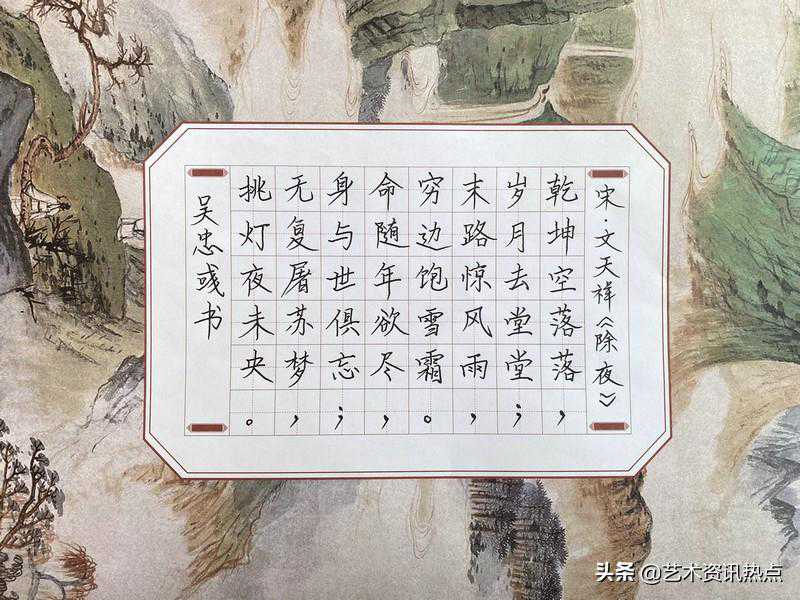 宋·文天祥《除夜》
乾坤空落落，
岁月去堂堂；
末路惊风雨，
穷边饱雪霜。
命随年欲尽，
身与世俱忘；
无复屠苏梦，
挑灯夜未央。
吴忠彧书
头条 @艺术资讯热点